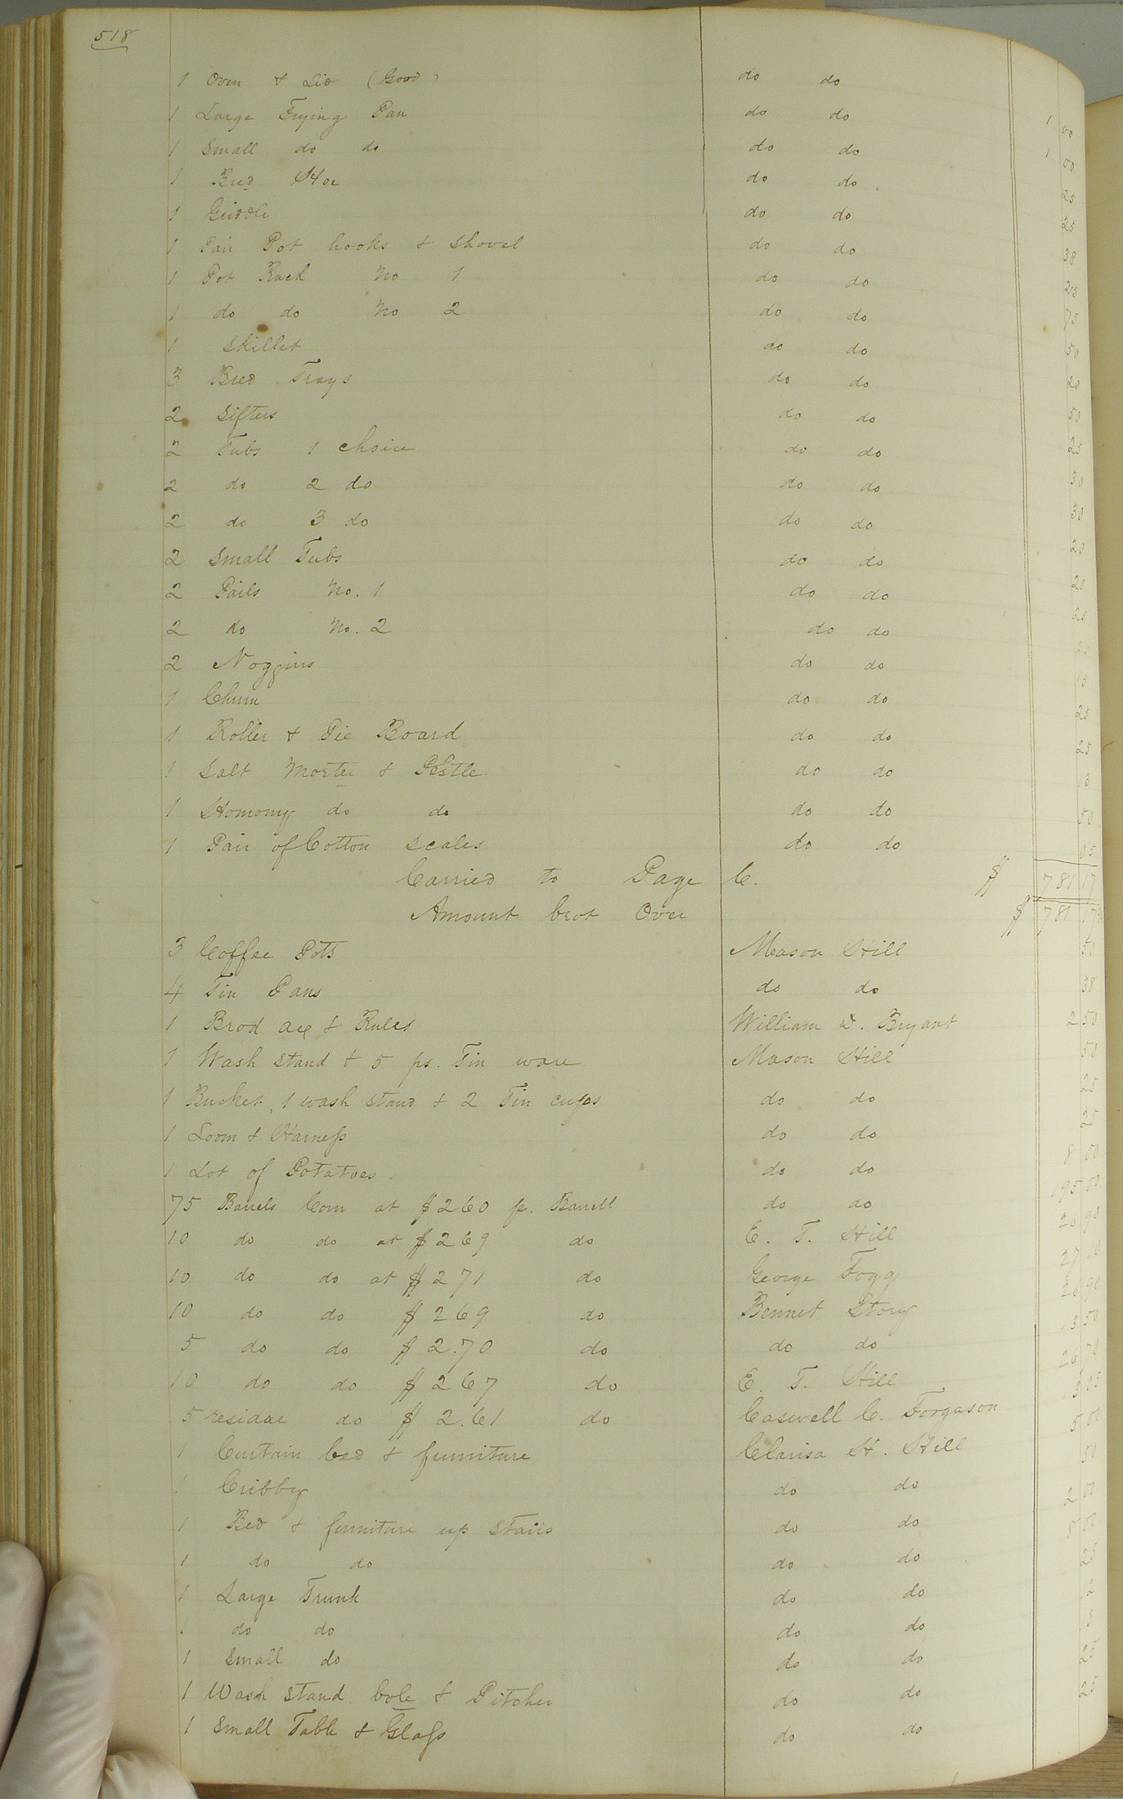 518
1 Oven & Lid (Good) do do
1 Large Frying Pan do do 1 00
1 Small do do do do 1 00
1 Bred Hoe do do 25
1 Griddle do do 25
1 Pair Pot hooks & Shovel do do 38
1 Pot Rack No 1 do do 25
1 do do No 2 do do 75
1 Skillet do do 50
3 Bred Trays do do 20
2 Sifters do do 50
2 Tubs 1 choice do do 25
2 do 2 do do do 30
2 do 3 do do do 30
2 Small Tubs do do 20
2 Pails No. 1 do do 20
2 do No. 2 do do 25
2 Noggins do do
1 Churn do do
1 Roller & Pie Board do do 25
1 Salt Morter & Pestle do do 25
1 Homony do do do do 50
1 Pair of Cotton Scales do do
Carried to Page C. $ 781 17
Amount brot Over $ 781 17
3 Coffee Pots Mason Hill 50
4 Tin Pans do do 38
1 Brod axe & Rules William D. Bryant 2 50
1 Wash Stand & 5 ps. Tin ware Mason Hill 50
1 Bucket, 1 wash stand & 2 Tin cups do do 25
1 Loom & Harness do do 25
1 Lot of Potatoes do do 8 00
75 Barrels Corn at $2 60 p. Barrell do do 195 00
10 do do at $2 69 do E. T. Hill 26 90
10 do do at $2 71 do George Fogg 27 10
10 do do $2 69 do Bennet Story 26 90
5 do do $2.70 do do do 13 50
10 do do $2 67 do E. T. Hill 26 70
5 residue do $2.61 do Caswell C. Forgason
1 Curtain bed & furniture Clarisa H. Hill 5 00
1 Cribby do do 50
1 Bed & furniture up Stairs do do 2 00
1 do do do do 5 00
1 Large Trunk do do 25
1 do do do do
1 Small do do do
1 Wash Stand bole & Pitcher do do 25
1 Small Table & Glass do do 25